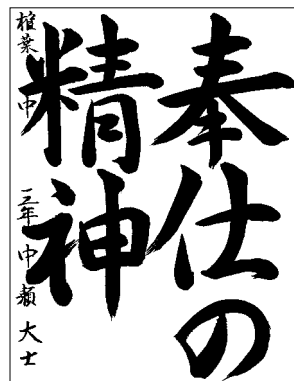 奉仕の
精神
椎葉中 三年 中瀬大士